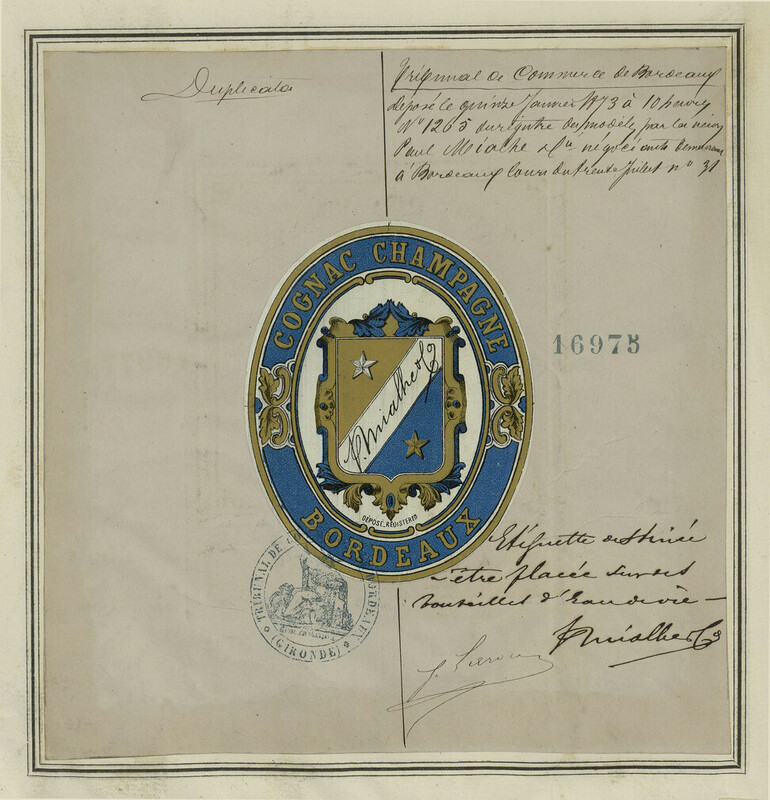 Duplicata
Tribunal de Commerce de Bordeaux
déposé le quinze Janvier 1873 à 10 heures
No 1265 du registre des modèles, par les sieurs
Paul Mialhe & Cie négociants demeurant
à Bordeaux Cours du trente Juillet no 31
COGNAC CHAMPAGNE
P. Mialhe & Co
DÉPOSÉ_REGISTERED
BORDEAUX
16975
Etiquette destinée
à être placée sur des
bouteilles d'Eau de vie —
P Mialhe & Co
TRIBUNAL DE BORDEAUX
(GIRONDE)